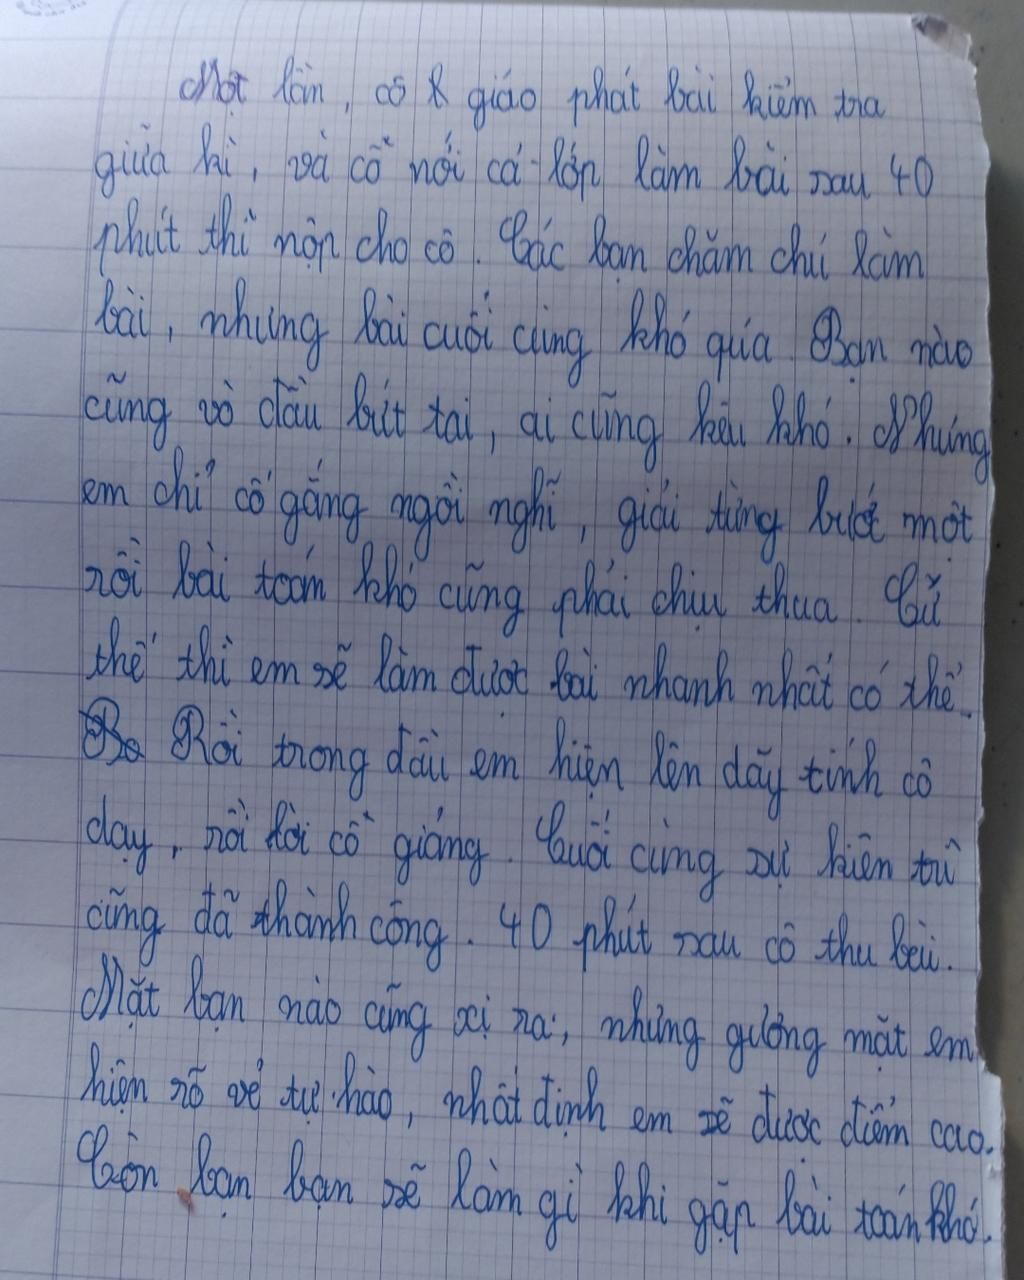 Một lần, cô giáo phát bài kiểm tra
giữa kì, và cô nói cả lớp làm bài sau 40
phút thì nộp cho cô. Các bạn chăm chú làm
bài, nhưng bài cuối cùng khó quá. Bạn nào
cũng vò đầu bứt tai, ai cũng kêu khó. Nhưng
em chỉ cố gắng ngồi nghĩ, giải từng bước một
rồi bài toán khó cũng phải chịu thua. Cứ
thế thì em sẽ làm được bài nhanh nhất có thể.
Rồi trong đầu em hiện lên dãy tính cô
dạy, rồi lời cô giảng. Cuối cùng sự kiên trì
cũng đã thành công. 40 phút sau cô thu bài.
Mặt bạn nào cũng xị ra, nhưng gương mặt em
hiện rõ vẻ tự hào, nhất định em sẽ được điểm cao.
Còn bạn bạn sẽ làm gì khi gặp bài toán khó.